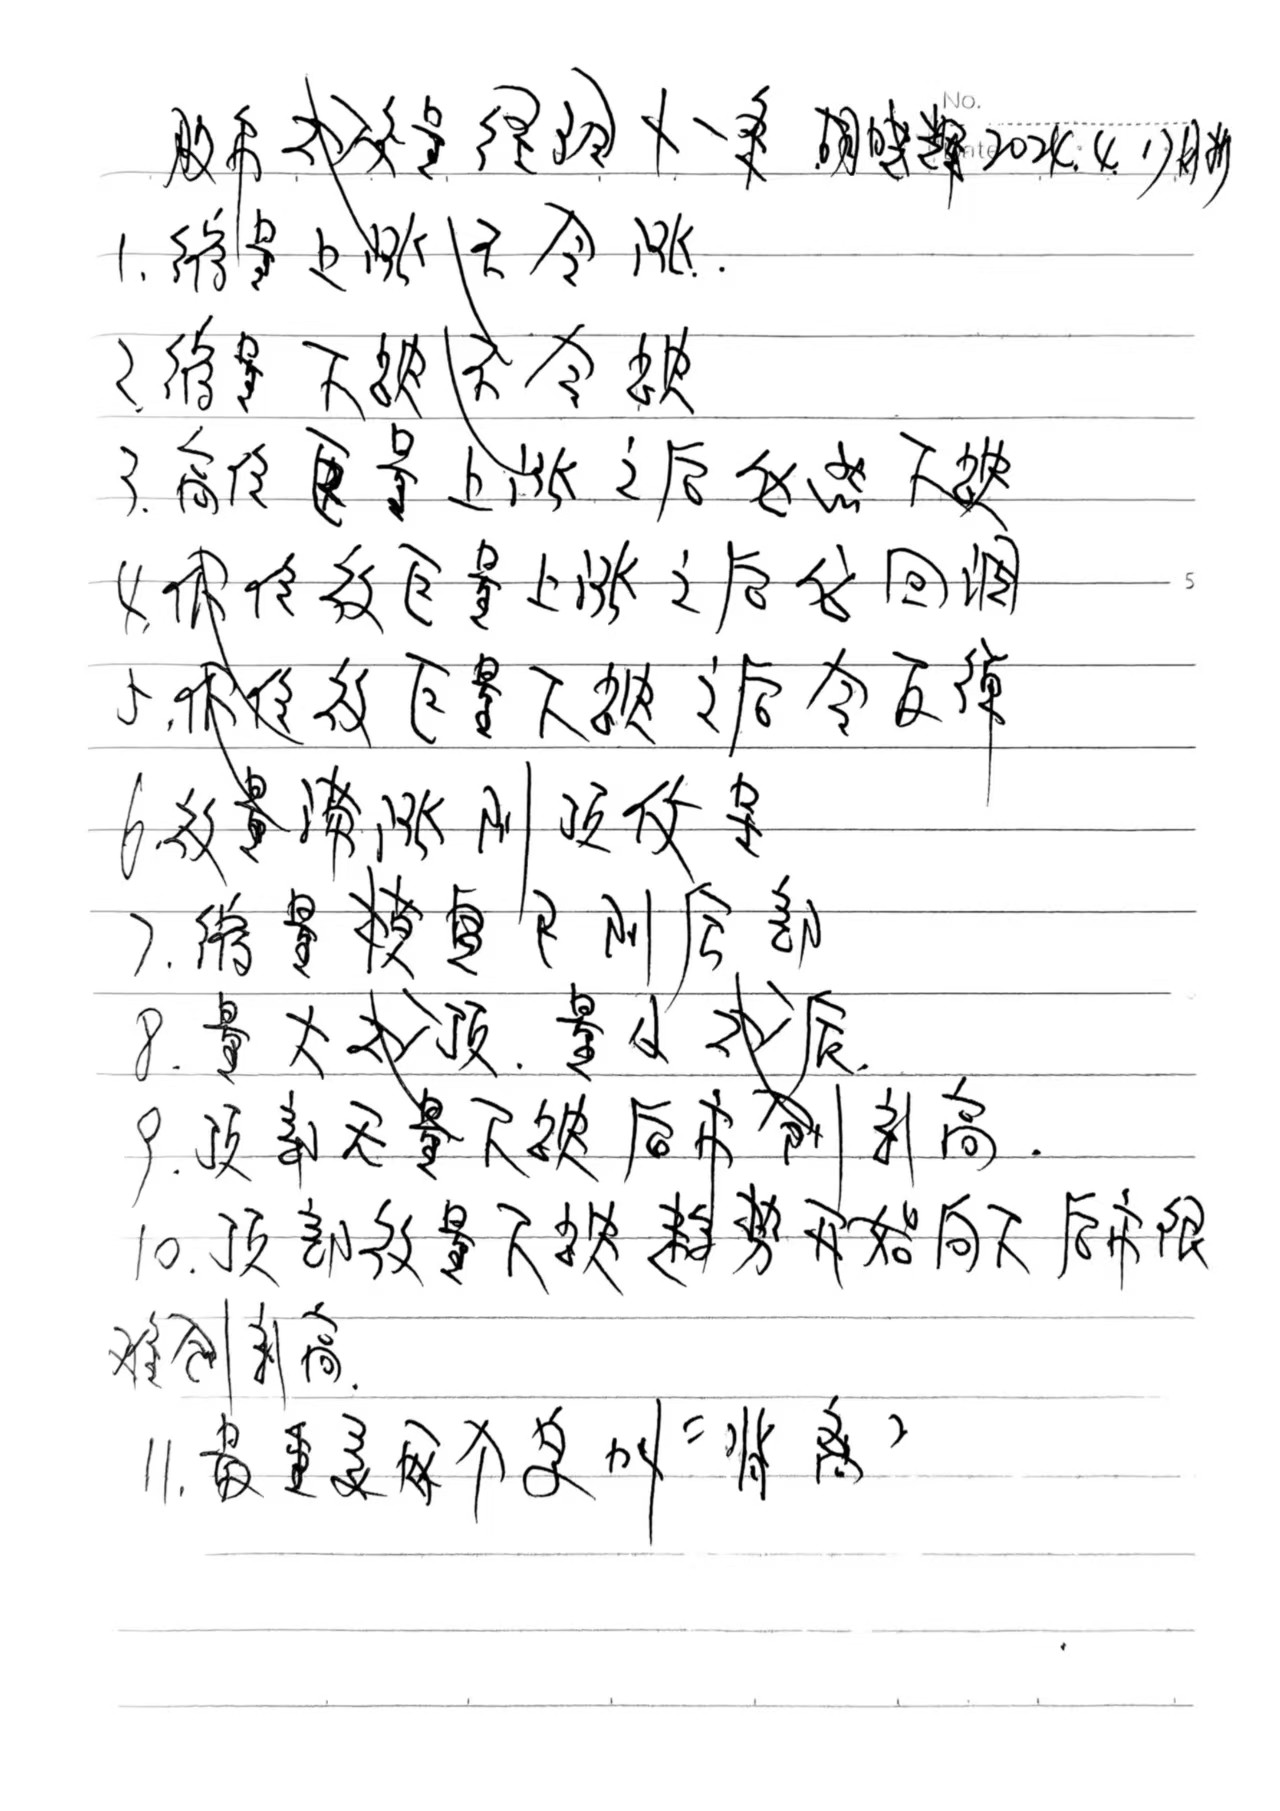 股市成交量定理十一条 胡晓辉 2024.4.17
No.
1.缩量上涨还会涨.
2.缩量下跌还会跌
3.高位巨量上涨之后必然下跌
4.低位放巨量上涨之后必回调
5.低位放巨量下跌之后会反弹
5
6.放量滞涨则顶位显
7.缩量横盘已则底部
8.量大成顶.量小成底.
9.顶部无量下跌后市创新高.
10.顶部放量下跌趋势开始向下后市很
难创新高.
11.最重要的不是叫“背离”